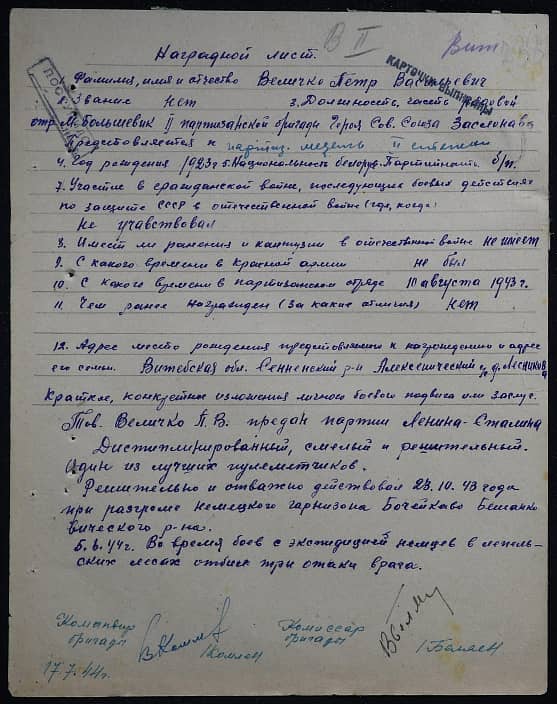 В II
Вит
КАРТОЧКА ВЫПИСАНА
Наградной лист.
Фамилия, имя и отчество Величко Пётр Васильевич
Звание нет 3. Должность, часть рядовой
отр М. Большевик II партизанской бригады Героя Сов. Союза Заслонава
Представляется к партиз. медаль II степени
4. Год рождения 1923г 5. Национальность белорус. Партийность б/п.
7. Участие в гражданской войне, последующие боевых действиях
по защите СССР в отечественной войне (где, когда)
Не учавствовал
8. Имеет ли ранения и кантузии в отечественной войне не имеет
9. С какого времени в Красной армии не был
10. С какого времени в партизанском отряде 10 августа 1943 г.
11. Чем ранее награжден (за какие отличия) Нет
12. Адрес место рождения представляемого к награждению и адрес
его семьи. Витебская обл. Сенненский р-н Алексенический д. Лесников
Краткое, конкретное изложения личного боевого подвига или заслуг.
Тов. Величко П.В. предан партии Ленина-Сталина
Дистиплинированный, смелый и решительный.
Один из лучших пулеметчиков.
Решительно и отважно действовал 23.10.43 года
при разгроме немецкого гарнизона Бочейкаво Бешанко
вического р-на.
5.6.44г. Во время боев с экспидицией немцев в лепель-
ских лесах отбил три атаки врага.
Командир бригады
Комиссар бригады
17.7.44г.